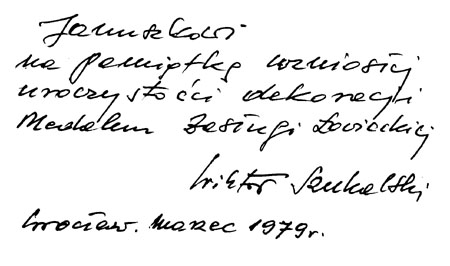 Januszkowi
na pamiątkę wzniosłej
uroczystości dekoracji
Medalem Zasługi Łowieckiej
Wiktor
Wrocław. marzec 1979r.